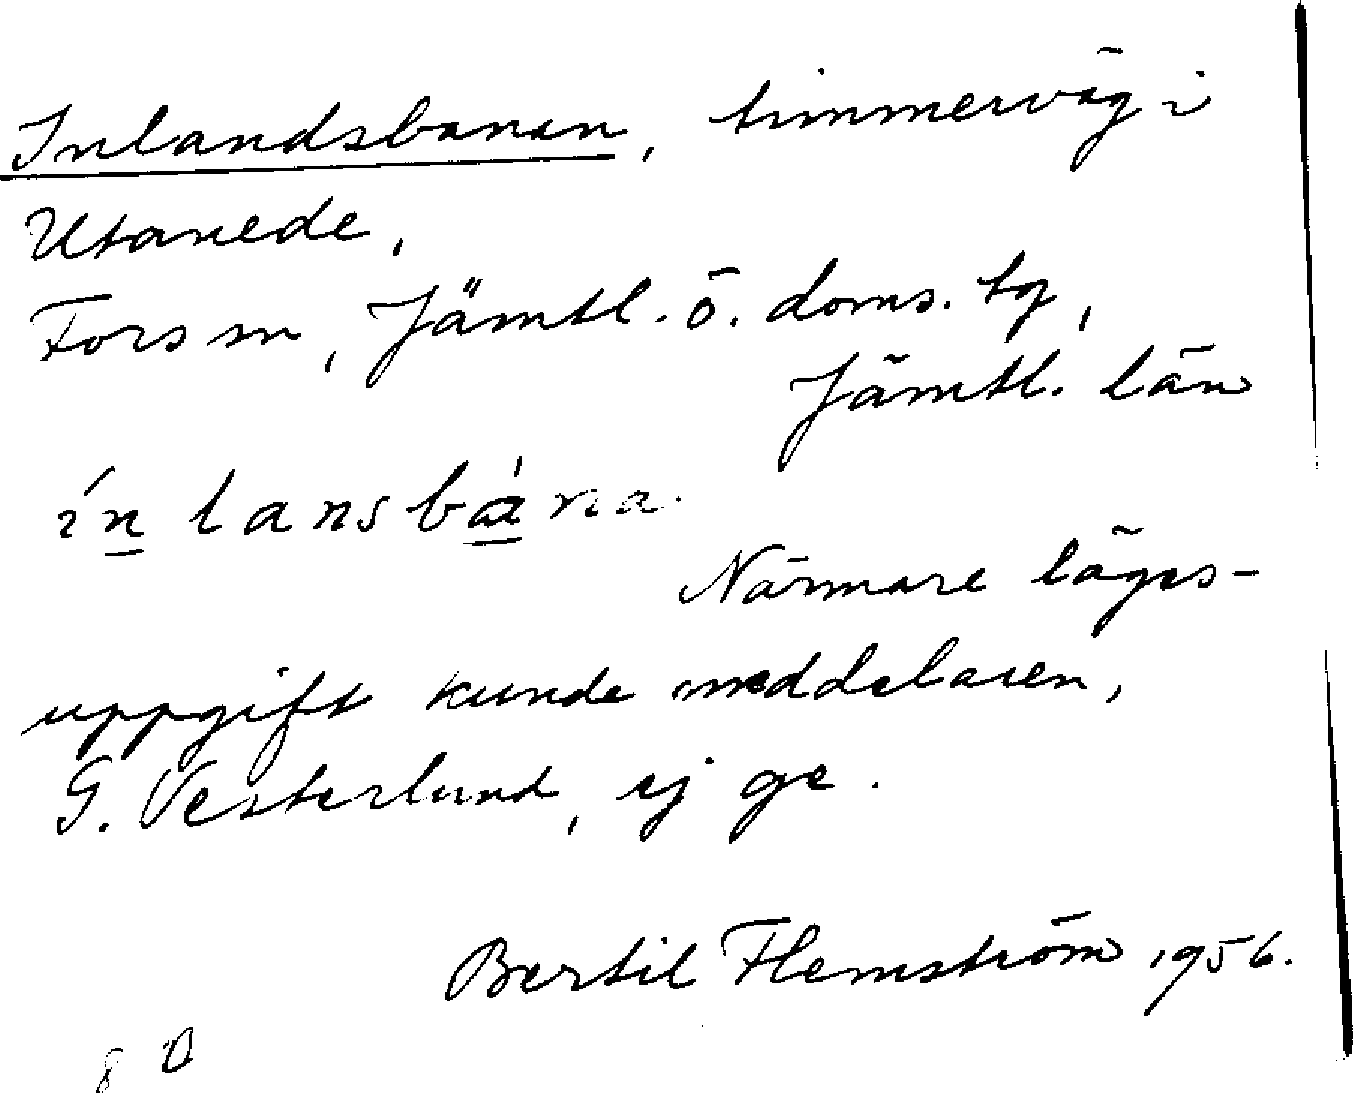 Inlandsbanan, timmerväg i
Utanede,
Fors sn, Jämtl. ö. doms. tg,
Jämtl. län
ínlansbána.
Närmare läges-
uppgift kunde meddelaren,
G. Vesterlund, ej ge.
Bertil Flemström 1956.
8